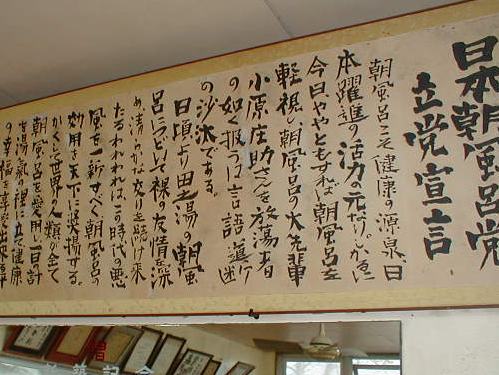 日本朝風呂党
立党宣言
朝風呂こそ健康の源泉、日
本躍進の活力の元なりしが急に
今日ややともすれば朝風呂を
軽視し、朝風呂の大先輩
小原庄助さんを放蕩者
の如く扱うは言語道断
の沙汰である。
日頃より田之湯の朝風
呂につどいて裸の友情を深
め、清らかな友りを続け来
たるわれわれは、この時代の悪
風を一新すべく朝風呂の
効用を天下に奨揚する。
かくして世界人類が全て
朝風呂を愛用し一日の計
を湯気の裡に立て健康
の幸福を享